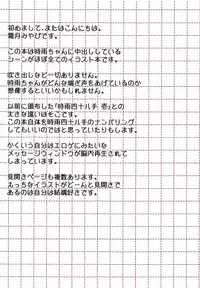 初めまして、またはこんにちは。
霜月みやびです。
この本は時雨ちゃんに中出ししている
シーンがほぼ全てのイラスト本です。
吹き出しなど一切ありません。
時雨ちゃんがどんな喘ぎ声をあげているのか
想像するといいかもしれません。
以前に頒布した「時雨四十八手 壱」との
大きな違いはそこです。
この本自体を時雨四十八手のナンバリング
してもいいのではと思っていたりもします。
かくいう自分はエロゲみたいな
メッセージウィンドウが脳内再生されて
しまっています。
見開きページも複数あります。
えっちなイラストがどーんと見開きで
あるのは自分は結構好きです。